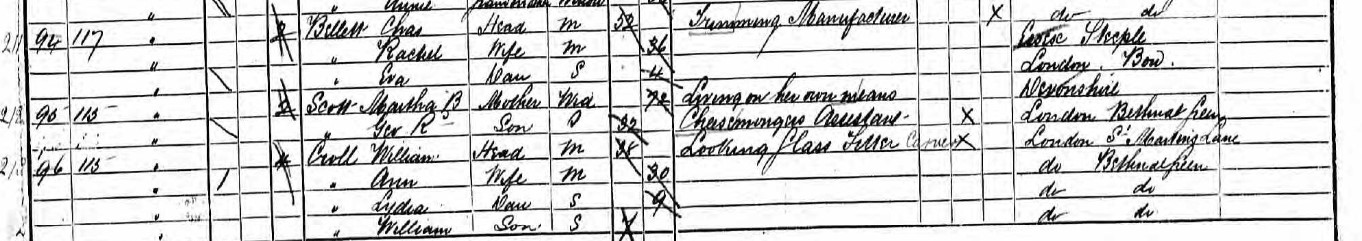 " Annie Widow
94 117 " 2 Billett Chas Head M 52 Trimming Manufacturer X do do
" " Rachel Wife M 36 Essex Steeple
" " Eva Dau S 4 London Bow
95 115 " 2 Scott Martha B Mother Wid 72 Living on her own means Devonshire
" " Geo R Son S 32 Cheesemongers Assistant X London Bethnal Green
96 115 " 4 Croll William Head M 38 Looking Glass Fitter Carver X London St Martins Lane
" " Ann Wife M 30 do Bethnal Green
" " Lydia Dau S 9 do do
" " William Son S 7 do do